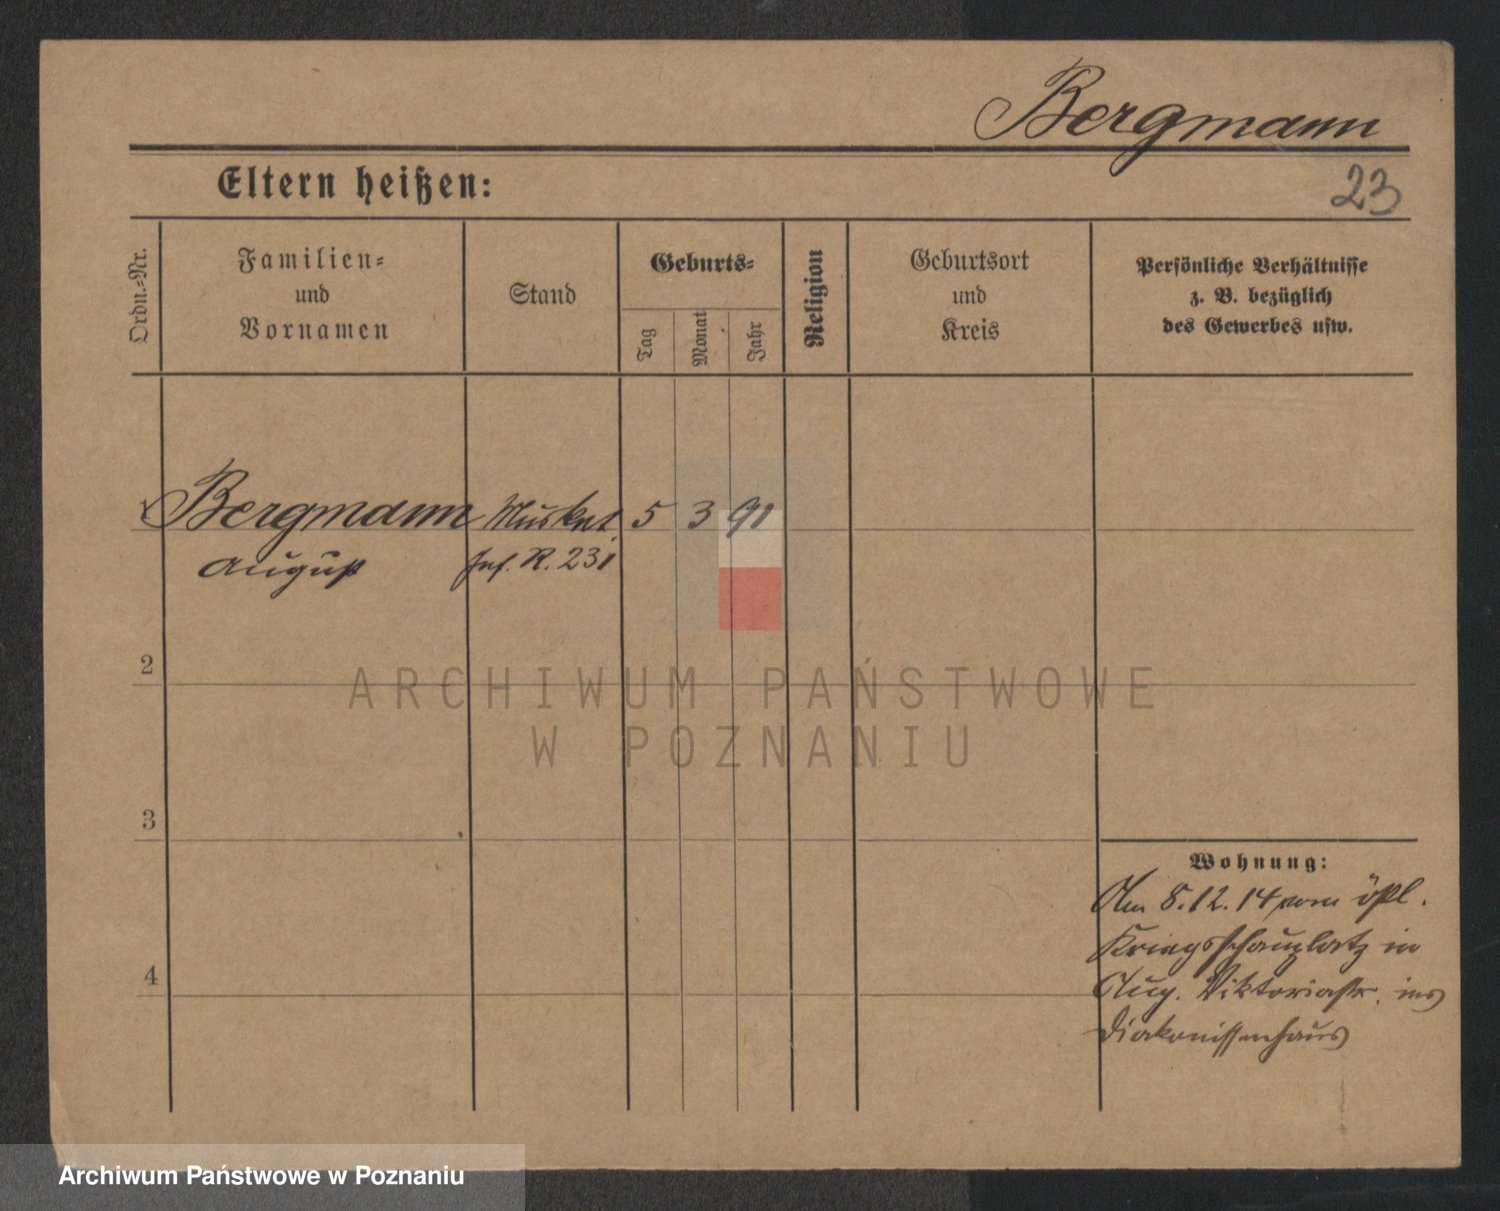 Bergmann
Eltern heißen:
23
Ordn.-Nr.
Familien-
und
Vornamen
Stand
Geburts-
Tag
Monat
Jahr
Religion
Geburtsort
und
Kreis
Persönliche Verhältnisse
z. B. bezüglich
des Gewerbes usw.
Bergmann Musket. 5 3 91
August Inf. R. 231
2
ARCHIWUM PAŃSTWOWE
W POZNANIU
3
Wohnung:
Am 8.12.14 vom östl.
Kriegsschauplatz in
4
Aug. Viktoriastr. ins
Diakonissenhaus
Archiwum Państwowe w Poznaniu